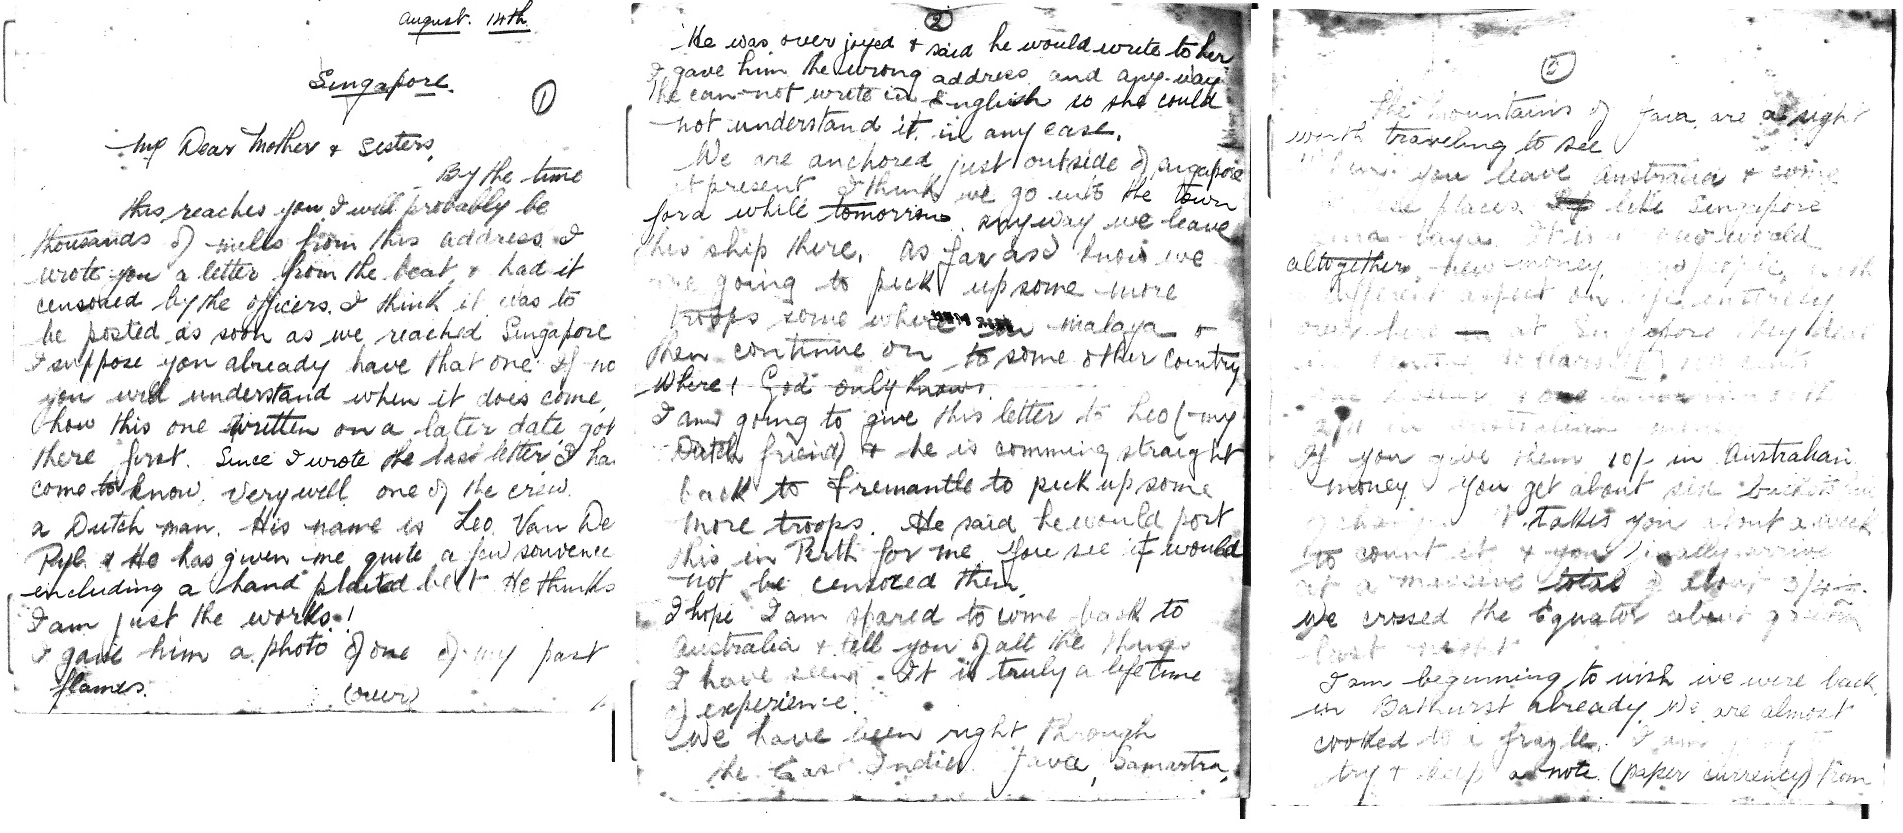 August. 14th.
Singapore.
①
My Dear Mother & Sisters,
By the time
this reaches you I will probably be
thousands of miles from this address. I
wrote you a letter from the boat & had it
censored by the officers. I think it was to
be posted as soon as we reached Singapore
I suppose you already have that one. If no
you will understand when it does come,
how this one written on a later date got
there first. Since I wrote the last letter I ha
come to know very well one of the crew.
a Dutch man. His name is Leo Van De
& He has given me quite a few souvenee
encluding a hand plaited belt He thinks
I am just the works!
I gave him a photo of one of my past
flames.
(over)
②
He was over joyed & said he would write to her.
I gave him the wrong address and any-way
he can-not write in English so she could
not understand it in any case.
We are anchored just outside of
at present I think we go into the town
for a while tomorrow anyway we leave
this ship there. As far as I know we
are going to pick up some more
troops some where in Malaya &
then continue on to some other country
Where! God only knows.
I am going to give this letter to Leo (my
Dutch friend) & he is comming straight
back to Fremantle to pick up some
more troops. He said he would post
this in Perth for me. You see it would
not be censored then.
I hope I am spared to come back to
Australia & tell you of all the things
I have seen. It is truly a life time
of experience.
We have been right through
the East Indies Java, Samartra,
The mountains of Java are a sight
worth traveling to see
When you leave Australia & come
places like Singapore
It is a new world
altogether, new money, people, with
different aspect on life entirely
at Singapore they
money
If you give them 10/- in Australian
money you get about six buckets
of It takes you about a week
to count it & you finally arrive
at a massive total of about 3/4
We crossed the Equator about
last night
I am beginning to wish we were back
in Bathurst already. We are almost
cooked to a frazle. I am
try & keep a note (paper currency) from